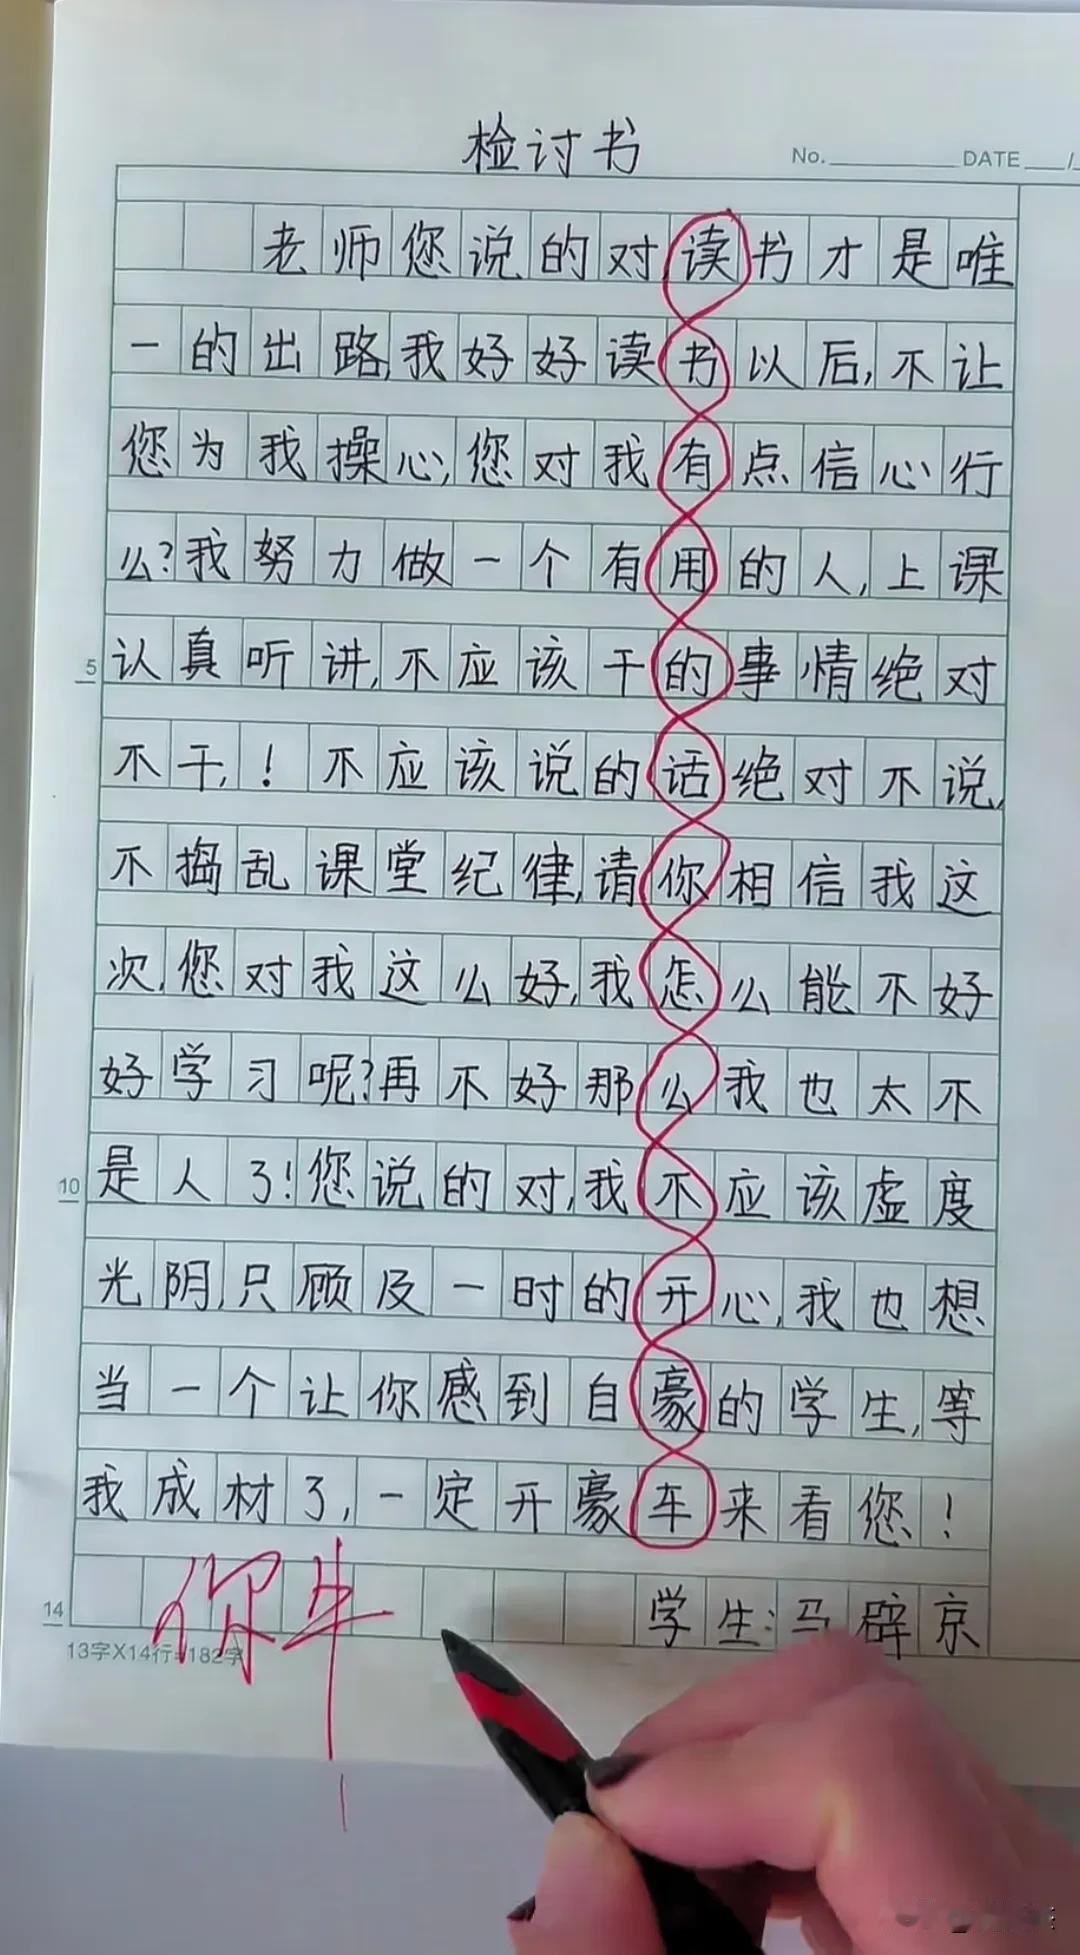 检讨书
No. DATE /
老师您说的对,读书才是唯
一的出路,我好好读书以后,不让
您为我操心,您对我有点信心行
么?我努力做一个有用的人,上课
5 认真听讲,不应该干的事情绝对
不干,！不应该说的话绝对不说,
不捣乱课堂纪律,请你相信我这
次,您对我这么好,我怎么能不好
好学习呢?再不好那么我也太不
10 是人了!您说的对,我不应该虚度
光阴,只顾及一时的开心,我也想
当一个让你感到自豪的学生,等
我成材了,一定开豪车来看您！
14 学生:马辟京
你牛
13字X14行=182字